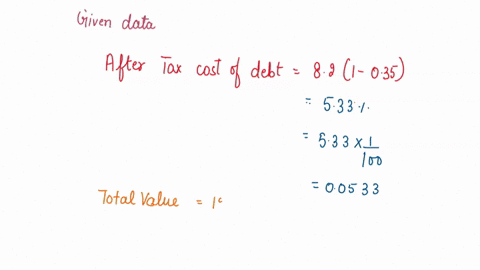 Given data
After Tax cost of debt = 8.2 (1 - 0.35)
= 5.33 %
= 5.33 × 1/100
= 0.0533
Total Value = 1